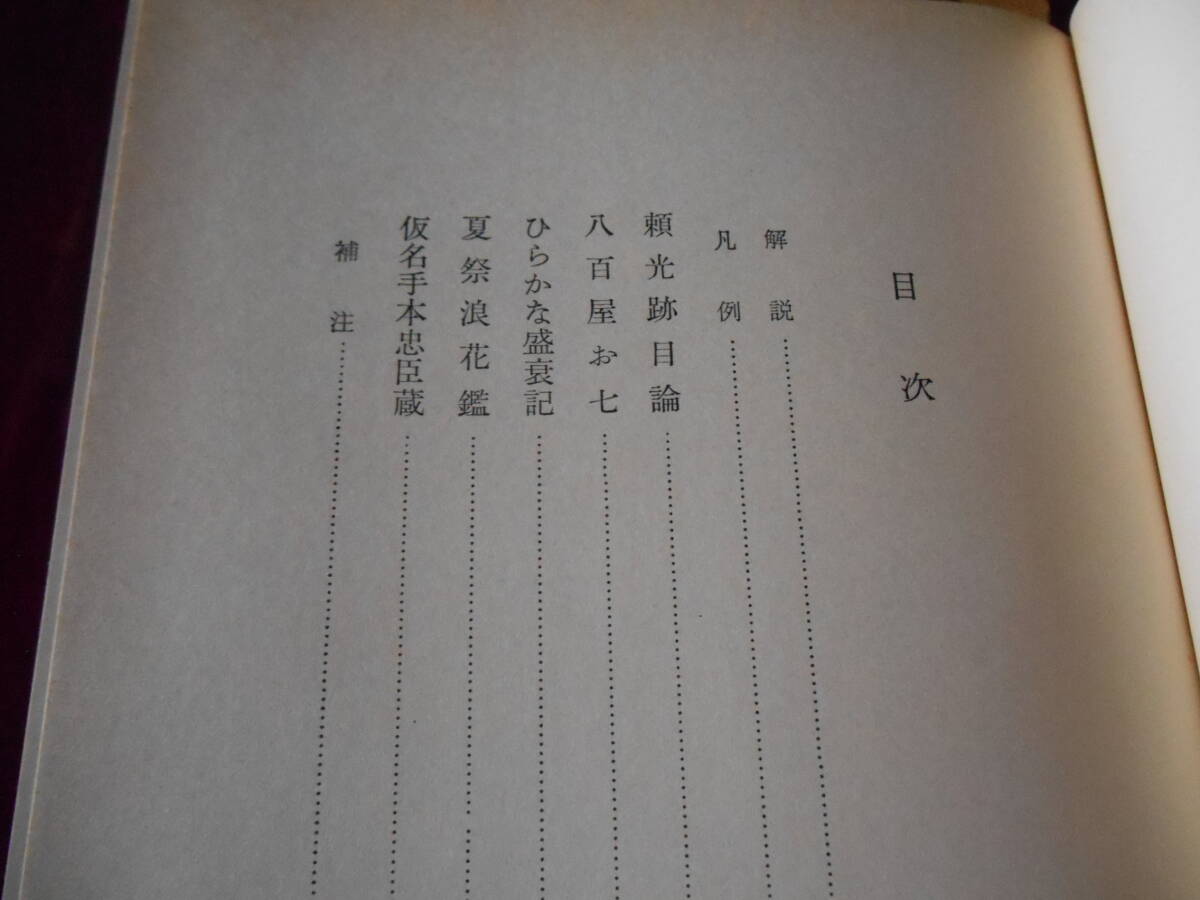 目次
解説
凡例
頼光跡目論
八百屋お七
ひらかな盛衰記
夏祭浪花鑑
仮名手本忠臣蔵
補注